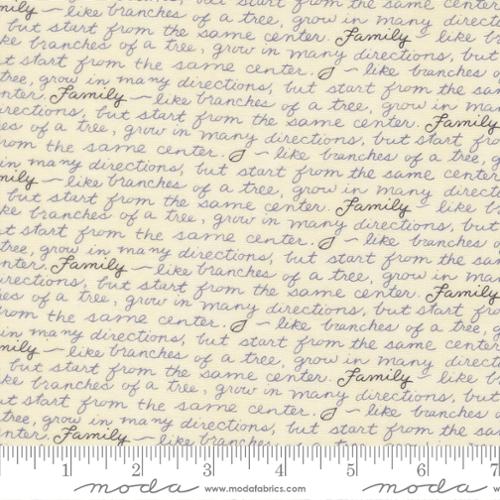 mily ~ like branches of a tree, grow in many directi
but start from the same center. Family ~ like b
ke branches of a tree, grow in many directions, but
t start from the same center. ~ like branches o
tree, grow in many directions, but start from the sam
nter. Family ~ like branches of a tree, grow in man
irections, but start from the same center. Family
es of a tree, grow in many directions, but start fro
rom the same center. ~ like branches of a tree, g
in many directions, but start from the same center
mily ~ like branches of a tree, grow in many directi
but start from the same center. Family ~ like b
ke branches of a tree, grow in many directions, but
t start from the same center. ~ like branches o
tree, grow in many directions, but start from the sam
nter. Family ~ like branches of a tree, grow in man
irections, but start from the same center. Family
es of a tree, grow in many directions, but start fro
rom the same center. ~ like branches of a tree, g
in many directions, but start from the same center
mily ~ like branches of a tree, grow in many directi
but start from the same center. Family ~ like b
ke branches of a tree, grow in many directions, but
ut start from the same center. ~ like branches o
tree, grow in many directions, but start from the sam
nter. Family ~ like branches
1 2 3 4 5 6 7
moda www.modafabrics.com moda